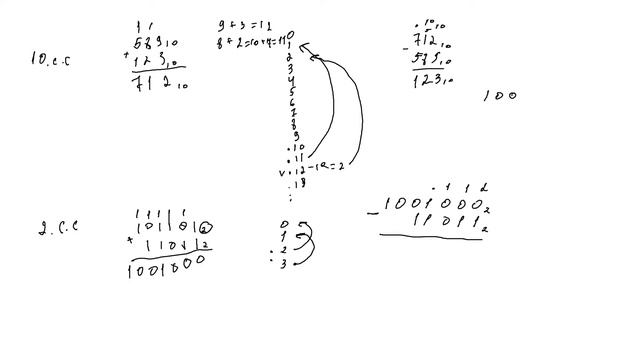 10.c.c
1 1
589₁₀
+ 123₁₀
712₁₀
9+3=12
8+2=10+1=11
0
1
2
3
4
5
6
7
8
9
.10
.11
v.12 -10=2
.13
:
. 10 10
712₁₀
- 589₁₀
123₁₀
100
2.c.c
1 1 1 1 1
101101₂
+ 11011₂
1001000
0
1
: 2
: 3
. 1 1 2
1001000₂
- 11011₂